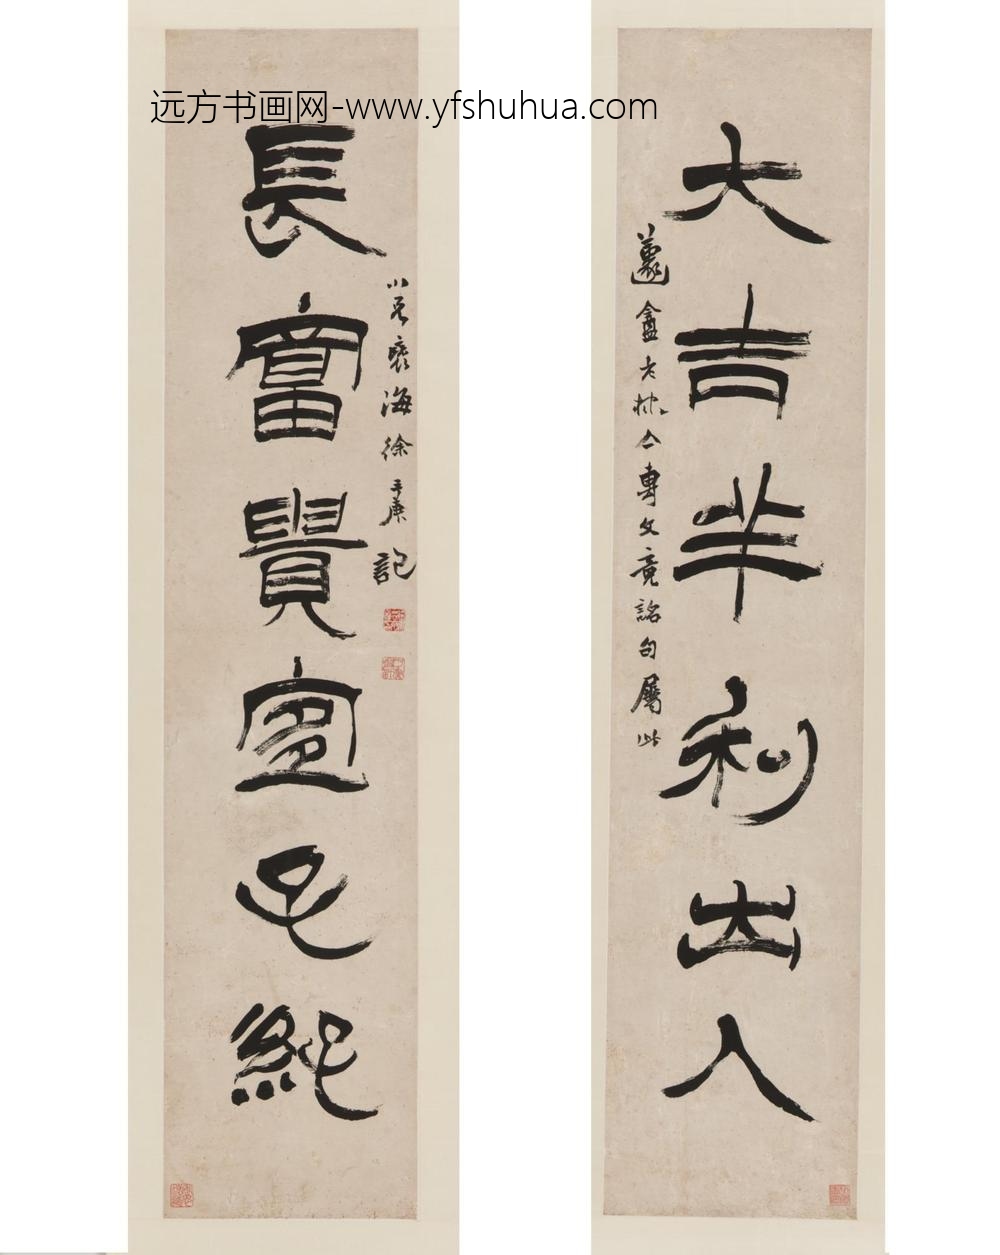 远方书画网-www.yfshuhua.com
大吉羊利出入
盦古專文竟銘句屬此
長富貴宜子孫
褎海徐三庚記